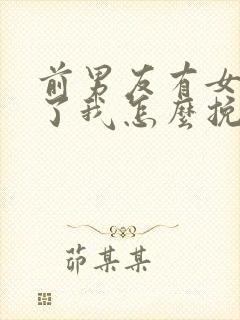 前男友有女
了我怎麼挽
茆某某